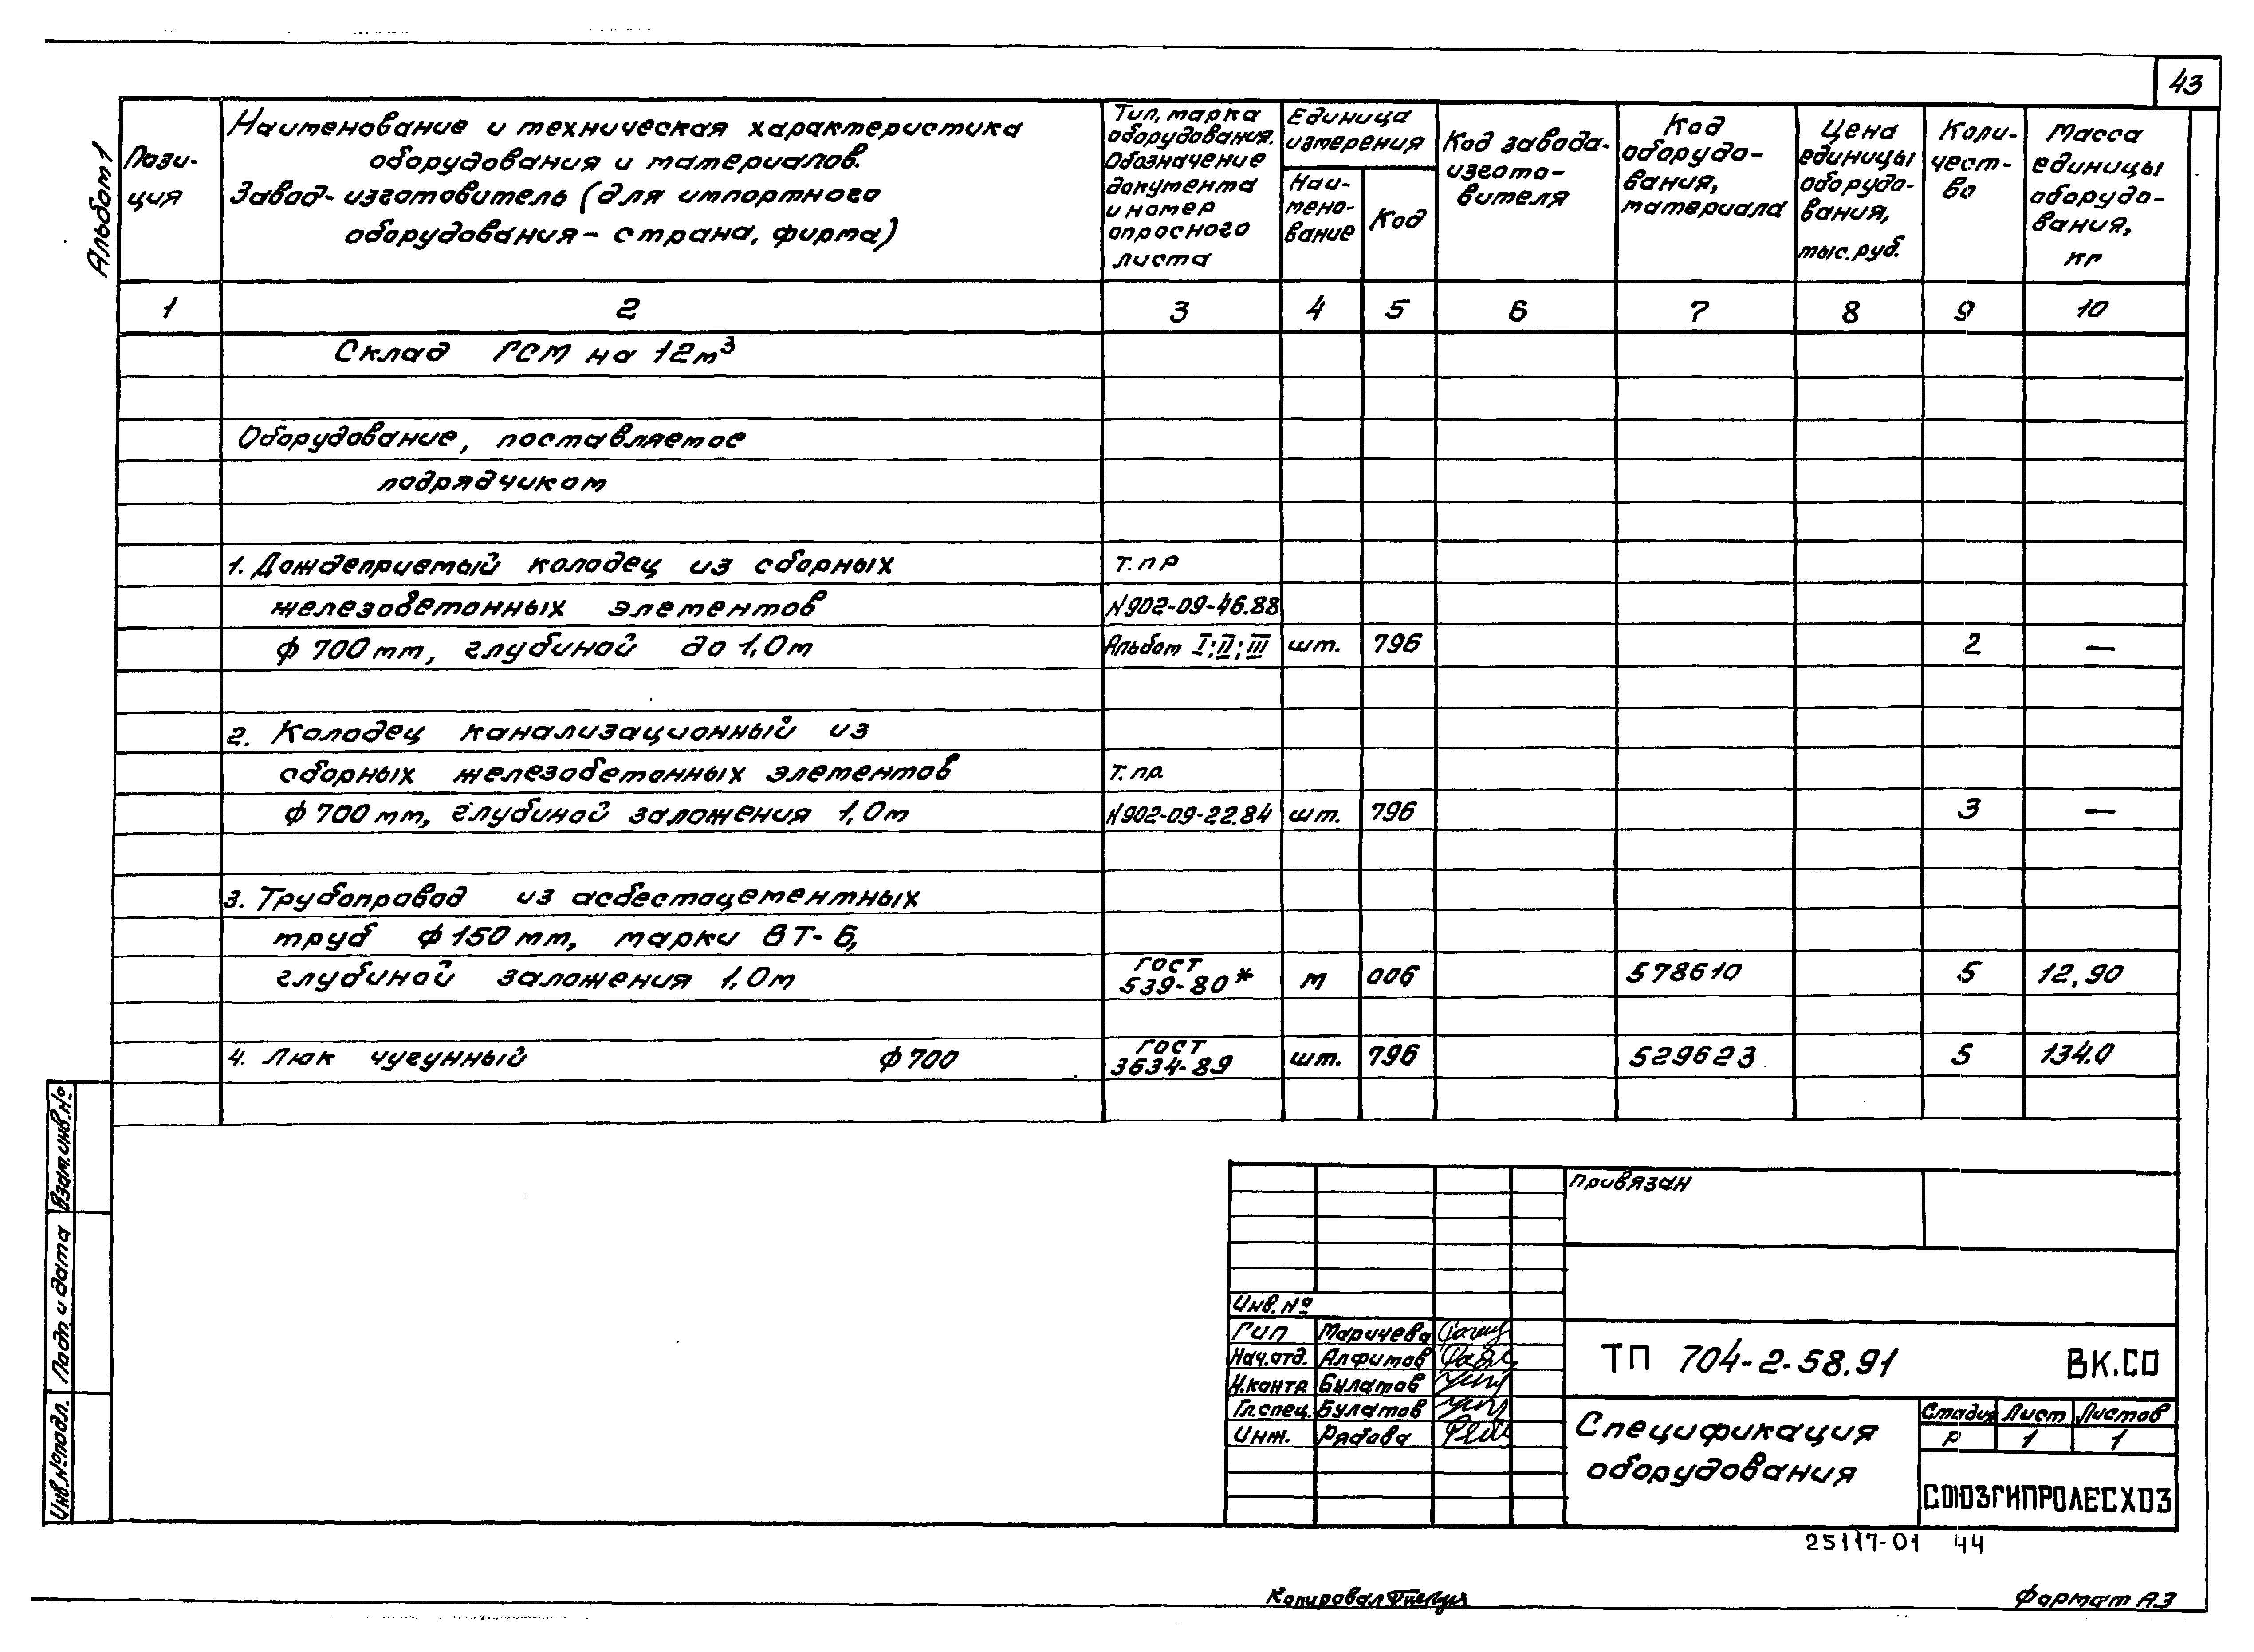 43
Альбом 1
Пози-
ция
Наименование и техническая характеристика
оборудования и материалов.
Завод-изготовитель (для импортного
оборудования - страна, фирма)
Тип, марка
оборудования.
Обозначение
документа
и номер
опросного
листа
Единица
измерения
Наи-
мено-
вание
Код
Код завода-
изгото-
вителя
Код
оборудо-
вания,
материала
Цена
единицы
оборудо-
вания,
тыс. руб.
Коли-
чест-
во
Масса
единицы
оборудо-
вания,
кг
1 2 3 4 5 6 7 8 9 10
Склад ГСМ на 12м³
Оборудование, поставляемое
подрядчиком
1. Дождеприемый колодец из сборных Т.пр
железобетонных элементов N902-09-46.88
ф 700мм, глубиной до 1,0м Альбом I;II;III шт. 796 2 —
2. Колодец канализационный из
сборных железобетонных элементов Т.пр.
ф 700мм, глубиной заложения 1,0м N902-09-22.84 шт. 796 3 —
3. Трубопровод из асбестоцементных
труб ф 150мм, марки ВТ-Б,
глубиной заложения 1,0м ГОСТ 539-80* м 006 578610 5 12,90
4. Люк чугунный ф700 ГОСТ 3634-89 шт. 796 529623 5 134.0
Взам.инв.№
Подп. и дата
Инв.№подл.
Привязан
Инв. №
Гип Маричева
Нач.отд. Алфимов
Н.контр Булатов
Гл.спец. Булатов
Инж. Рябова
ТП 704-2-58.91 ВК.СО
Спецификация
оборудования
Стадия Лист Листов
Р 1 1
СОЮЗГИПРОЛЕСХОЗ
25117-01 44
Копировал
Формат А3